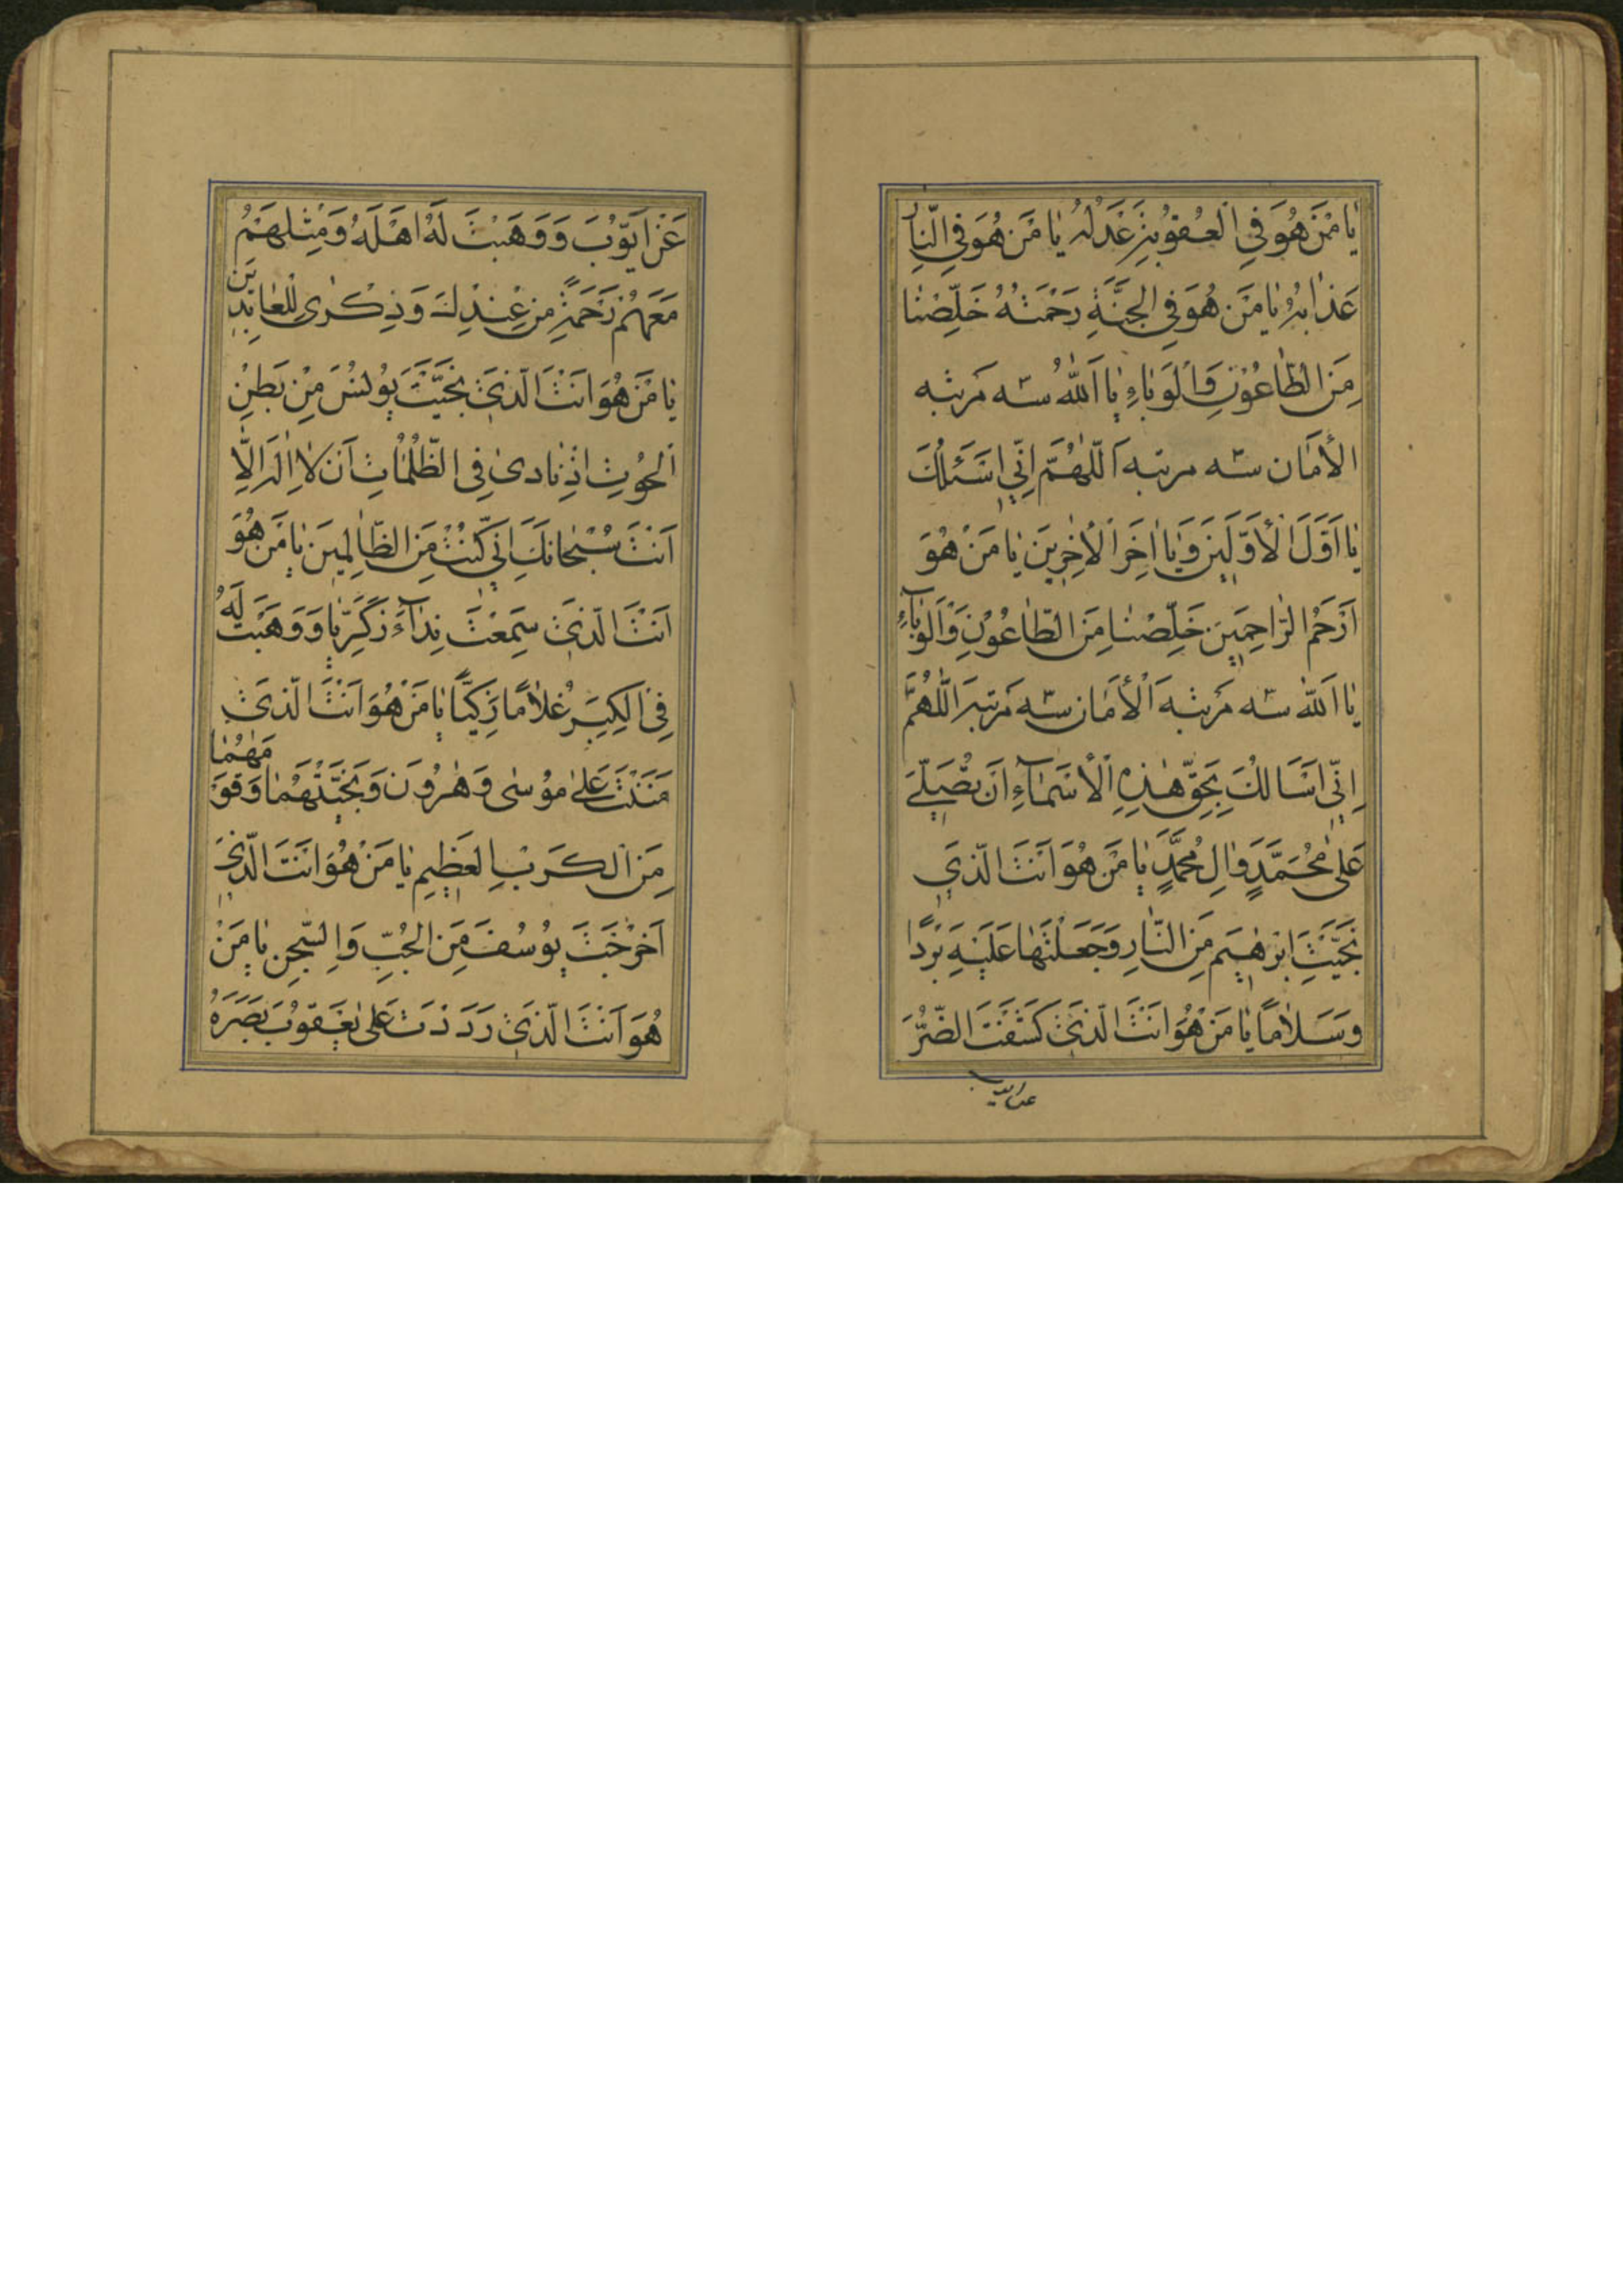 يَا مَنْ هُوَ فِي الْعُقُوبَةِ عَدْلُهُ يَا مَنْ هُوَ فِي النَّارِ
عَذَابُهُ يَا مَنْ هُوَ فِي الْجَنَّةِ رَحْمَتُهُ خَلِّصْنَا
مِنَ الطَّاعُونِ وَالْوَبَاءِ يَا اَللّٰهُ سه مرتبه
الْأَمَان سه مرتبه اَللّٰهُمَّ اِنِّي اَسْئَلُكَ
يَا اَوَّلَ الْأَوَّلِينَ وَيَا اٰخِرَ الْأٰخِرِينَ يَا مَنْ هُوَ
اَرْحَمُ الرَّاحِمِينَ خَلِّصْنَا مِنَ الطَّاعُونِ وَالْوَبَآءِ
يَا اَللّٰه سه مرتبه اَلْأَمَان سه مرتبه اَللّٰهُمَّ
اِنِّي اَسْاَلُكَ بِحَقِّ هٰذِهِ الْأَسْمَآءِ اَنْ تُصَلِّيَ
عَلٰى مُحَمَّدٍ وَاٰلِ مُحَمَّدٍ يَا مَنْ هُوَ اَنْتَ الَّذِي
نَجَّيْتَ اِبْرٰهِيمَ مِنَ النَّارِ وَجَعَلْتَهَا عَلَيْهِ بَرْدًا
وَسَلَامًا يَا مَنْ هُوَ اَنْتَ الَّذِي كَشَفْتَ الضُّرَّ
عن ايوب
عَنْ اَيُّوبَ وَوَهَبْتَ لَهُ اَهْلَهُ وَمِثْلَهُمْ
مَعَهُمْ رَحْمَةً مِنْ عِنْدِكَ وَذِكْرٰى لِلْعَابِدِينَ
يَا مَنْ هُوَ اَنْتَ الَّذِي نَجَّيْتَ يُونُسَ مِنْ بَطْنِ
الْحُوتِ اِذْ نَادٰى فِي الظُّلُمَاتِ اَنْ لَا اِلٰهَ اِلَّا
اَنْتَ سُبْحَانَكَ اِنِّي كُنْتُ مِنَ الظَّالِمِينَ يَا مَنْ هُوَ
اَنْتَ الَّذِي سَمِعْتَ نِدَآءَ زَكَرِيَّا وَوَهَبْتَ لَهُ
فِي الْكِبَرِ غُلَامًا زَكِيًّا يَا مَنْ هُوَ اَنْتَ الَّذِي
مَنَنْتَ عَلٰى مُوسٰى وَهٰرُونَ وَنَجَّيْتَهُمَا وَقَوْمَهُمَا
مِنَ الْكَرْبِ الْعَظِيمِ يَا مَنْ هُوَ اَنْتَ الَّذِي
اَخْرَجْتَ يُوسُفَ مِنَ الْجُبِّ وَالسِّجْنِ يَا مَنْ
هُوَ اَنْتَ الَّذِي رَدَدْتَ عَلٰى يَعْقُوبَ بَصَرَهُ